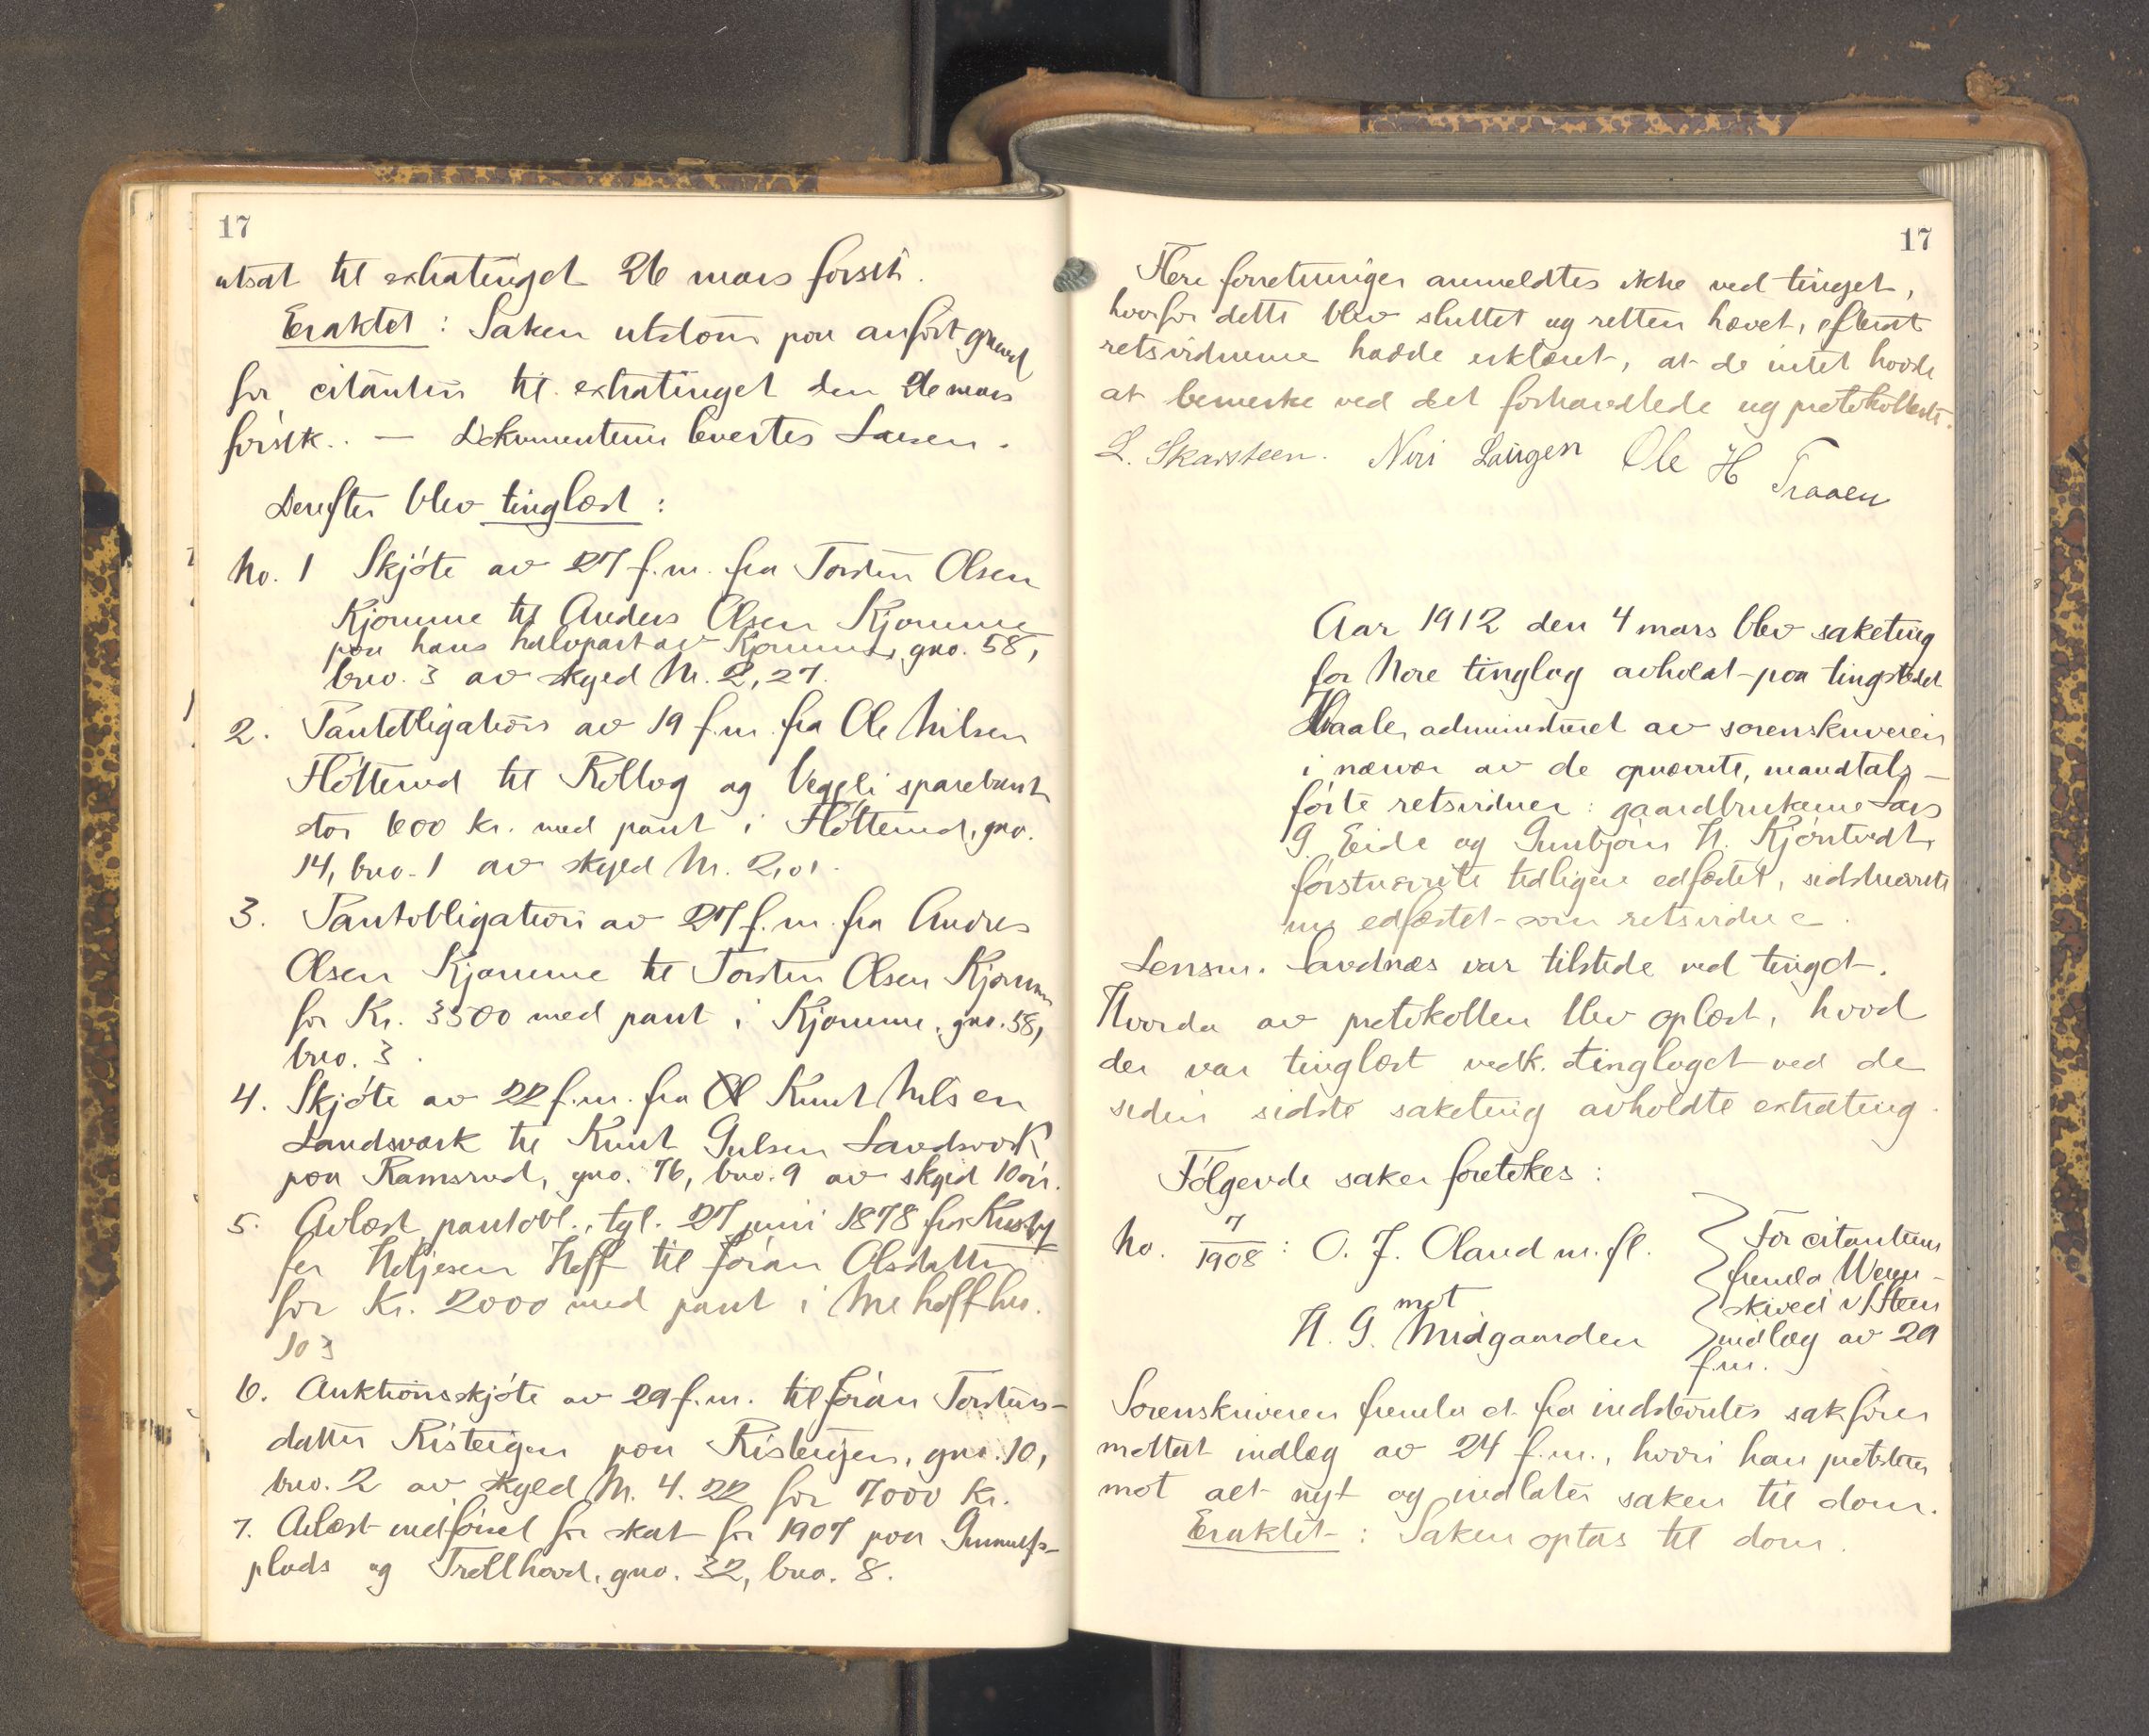 17
utsat til extratinget 26 mars førstk.
Eraktet: Saken utstaar paa anført grund
for citanten til extratinget den 26 mars
førstk. — Dokumenterne levertes Larsen.
Derefter blev tinglæst:
No. 1 Skjøte av 27 f.m. fra Torsten Olsen
Kjomme til Anders Olsen Kjomme
paa hans halvpart av Kjomme, gno. 58,
bno. 3 av skyld M. 2,27.
2. Pantobligation av 19 f.m. fra Ole Nilsen
Fløtterud til Rollag og Veggli sparebank
stor 600 kr. med pant i Fløtterud, gno.
14, bno. 1 av skyld M. 2,01.
3. Pantobligation av 27 f.m. fra Andres
Olsen Kjomme til Torsten Olsen Kjomme
for Kr. 3500 med pant i Kjomme, gno. 58,
bno. 3.
4. Skjøte av 22 f.m. fra Ol Knut Nilsen
Landsværk til Knut Gulsen Landsværk
paa Ramsrud, gno. 76, bno. 9 av skyld 10 ør.
5. Avlæst pantobl., tgl. 27 juni 1878 fra Kristof
fer Heljesen Hoff til Jøran Olsdatter
for Kr. 2000 med pant i hoff lno.
103
6. Auktionsskjøte av 29 f.m. til Jøran Torstens-
datter Risteigen paa Risteigen, gno. 10,
bno. 2 av skyld M. 4.22 for 7000 kr.
7. Avlæst utlæg for skat for 1907 paa Gunnulfs-
plads og Trollhovd, gno. 32, bno. 8.
17
Flere forretninger anmeldtes ikke ved tinget,
hvorfor dette blev sluttet og retten hævet, efterat
retsvidnerne hadde erklæret, at de intet havde
at bemerke ved det forhandlede og protokollerte.
L. Skarsteen. Niri Laugen Ole H Traaen
Aar 1912 den 4 mars blev saketing
for Nore tinglag avholdt paa tingstedet
Haale, administreret av sorenskriveren
i nærvær av de opnævnte, mandtals-
førte retsvidner: gaardbrukerne Lars
G. Eide og Gunbjørn H. Kjøntvedt,
førstnævnte tidligere edfæstet, sidstnævnte
nu edfæstet som retsvidne.
Lensm. Sandnæs var tilstede ved tinget.
Hvorda av protokollen blev oplæst, hvad
der var tinglæst vedk. tinglaget ved de
siden sidste saketing avholdte extrating.
Følgende saker foretokes:
No. 7/1908: O. J. Oland m. fl.
mot
H. G. Midgaarden
For citanterne
fremla
v/ Steen
indlæg av 29
f.m.
Sorenskriveren fremla et fra indstevntes sakfører
mottat indlæg av 24 f.m., hvori han protesterer
mot alt nyt og indlater saken til dom.
Eraktet: Saken optas til dom.